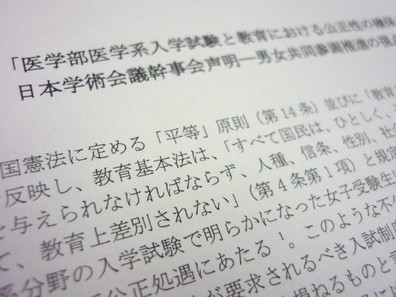 「医学部医学系入学試験と教育における公正性の確保
日本学術会議幹事会声明―男女共同参画推進の視点
国憲法に定める「平等」原則（第14条）並びに「教育
反映し、教育基本法は、「すべて国民は、ひとしく、
与えられなければならず、人種、信条、性別、社
て、教育上差別されない」（第4条第1項）と規定
系分野の入学試験で明らかになった女子受験生
公正処遇にあたる1。このような不
が要求されるべき入試制
ねるものと言